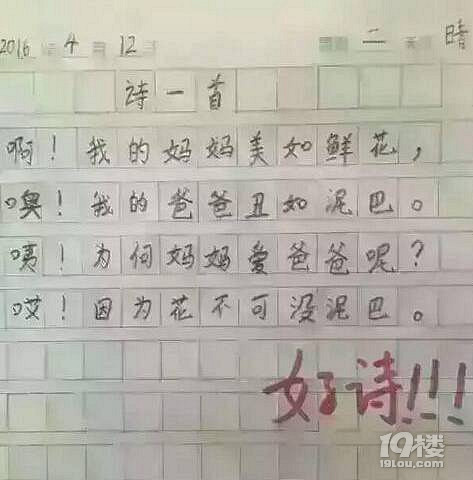 2016 4 12 二 晴
诗一首
啊！我的妈妈美如鲜花，
噢！我的爸爸丑如泥巴。
咦！为何妈妈爱爸爸呢？
哎！因为花不可没泥巴。
好诗!!!
19楼
19lou.com